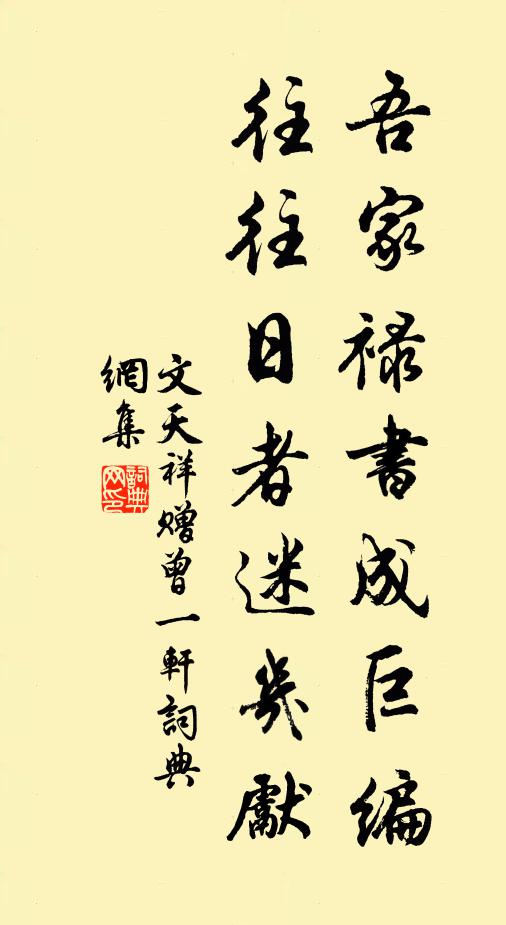 吾家禄書成巨编
往往日者迷幾獻
文天祥赠曾一軒詞典
網集
詞典網印